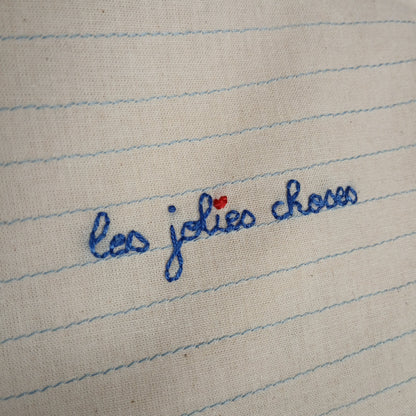 les jolies choses